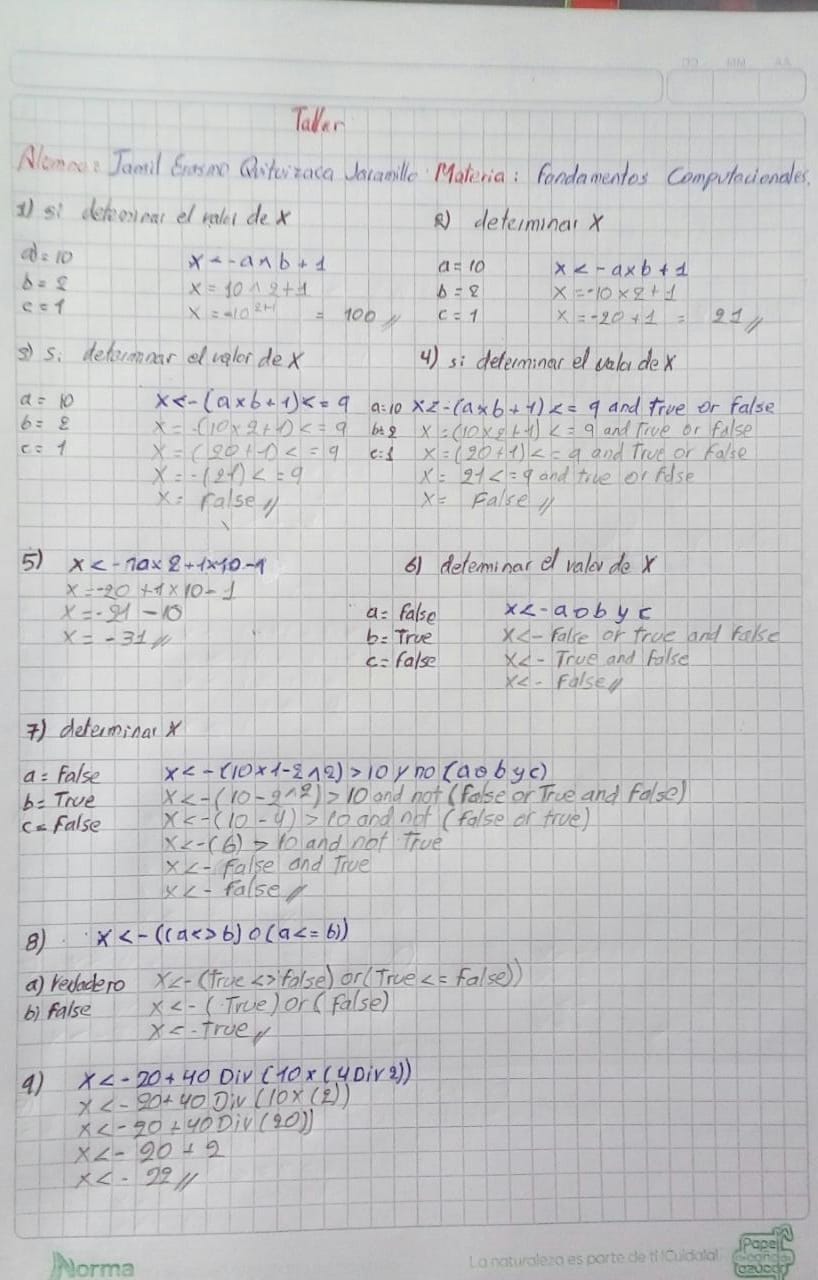 DD MM AA
Taller
Alumno: Jamil Erasmo Quituizaca Jaramillo Materia: Fundamentos Computacionales.
1) si determinar el valor de x
a = 10 x <- a ^ b + 1
b = 2 x = 10 ^ 2 + 1
c = 1 x = -10 2+1 = 100 //
2) determinar x
a = 10 x <- a x b + 1
b = 2 x = -10 x 2 + 1
c = 1 x = -20 + 1 = 21 //
3) si determinar el valor de x
a = 10 x <- (a x b + 1) <= 9
b = 2 x = -(10 x 2 + 1) <= 9
c = 1 x = (20 + 1) <= 9
x = -(21) <= 9
x = False //
4) si determinar el valor de x
a=10 x <- (a x b + 1) <= 9 and true or false
b=2 x = (10 x 2 + 1) <= 9 and True or false
c=1 x = (20 + 1) <= 9 and True or False
x = 21 <= 9 and true or false
x = False //
5) x <- 10 x 2 + 1 x 10 - 1
x = -20 + 1 x 10 - 1
x = -21 - 10
x = -31 //
6) deteminar el valor de x
a = false x <- a o b y c
b = True x <- False or true and False
c = false x <- True and False
x <- False //
7) determinar x
a = False x <- (10 x 1 - 2 ^ 2) > 10 y no (a o b y c)
b = True x <- (10 - 2 ^ 2) > 10 and not (false or True and False)
c = False x <- (10 - 4) > 10 and not (false or true)
x <- (6) > 10 and not True
x <- False and True
x <- False //
8) x <- ((a <> b) o (a <= b))
a) verdadero x <- (true <> false) or (True <= False))
b) False x <- (True) or (False)
x <- true //
9) x <- 20 + 40 Div (10 x (4 Div 2))
x <- 20 + 40 Div (10 x (2))
x <- 20 + 40 Div (20))
x <- 20 + 2
x <- 22 //
Norma
La naturaleza es parte de ti ¡Cuídala!
Papel
caña de
azúcar